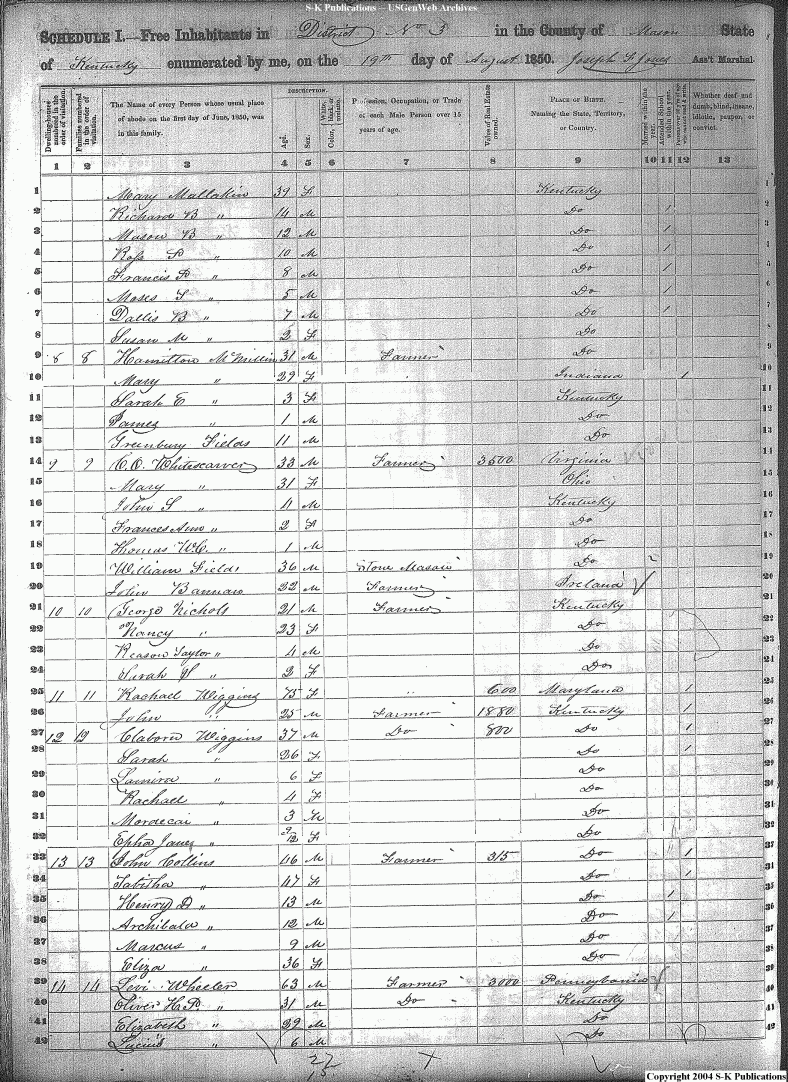 S-K Publications – USGenWeb Archives
SCHEDULE I.—Free Inhabitants in District No 3 in the County of Mason State
of Kentucky enumerated by me, on the 19th day of August 1850. Joseph Ass't Marshal.
Dwelling-houses numbered in the order of visitation.
Families numbered in the order of visitation.
The Name of every Person whose usual place of abode on the first day of June, 1850, was in this family.
DESCRIPTION.
Age.
Sex.
White, black, or mulatto.
Color,
Profession, Occupation, or Trade of each Male Person over 15 years of age.
Value of Real Estate owned.
PLACE OF BIRTH. Naming the State, Territory, or Country.
Married within the year.
Attended School within the year.
Whether deaf and dumb, blind, insane, idiotic, pauper, or convict.
1 2 3 4 5 6 7 8 9 10 11 12 13
1 Mary Mallakin 39 F Kentucky 1
2 Richard B " 14 M Do 1 2
3 Mason B " 12 M Do 1 3
4 Ross P " 10 M Do 1 4
5 Francis P " 8 M Do 1 5
6 Moses S " 5 M Do 1 6
7 Dallis B " 7 M Do 1 7
8 Susan M " 2 F Do 8
9 8 8 Hamilton McMillin 31 M Farmer Do 9
10 Mary " 29 F Indiana 1 10
11 Sarah E " 3 F Kentucky 11
12 James " 1 M Do 12
13 Greenbury Fields 11 M Do 13
14 9 9 C.C. Whitescarver 33 M Farmer 3500 Virginia 14
15 Mary " 31 F Ohio 15
16 John S " 4 M Kentucky 16
17 Frances Ann " 2 F Do 17
18 Thomas W.C. " 1 M Do 18
19 William Fields 36 M Stone Mason Do 19
20 John Bannan 22 M Farmer Ireland 20
21 10 10 George Nichols 21 M Farmer Kentucky 21
22 Nancy " 23 F Do 22
23 Reason Taylor " 4 M Do 23
24 Sarah " 2 F Do 24
25 11 11 Rachael Wiggins 75 F 600 Maryland 1 25
26 John " 25 M Farmer 1880 Kentucky 1 26
27 12 12 Claborn Wiggins 37 M Do 800 Do 1 27
28 Sarah " 26 F Do 1 28
29 Lamira " 6 F Do 29
30 Rachael " 4 F Do 30
31 Mordecai " 3 M Do 31
32 Epha Jane " 9/12 F Do 32
33 13 13 John Collins 46 M Farmer 315 Do 1 33
34 Tabitha " 47 F Do 1 34
35 Henry D " 13 M Do 1 35
36 Archibald " 12 M Do 1 36
37 Marcus " 9 M Do 37
38 Eliza " 36 F Do 38
39 14 14 Levi Wheeler 63 M Farmer 3000 Pennsylvania 39
40 Oliver H.P. " 31 M Do Kentucky 40
41 Elizabeth " 29 M Do 41
42 Lucius " 6 M Do 42
27
15
Copyright 2004 S-K Publications